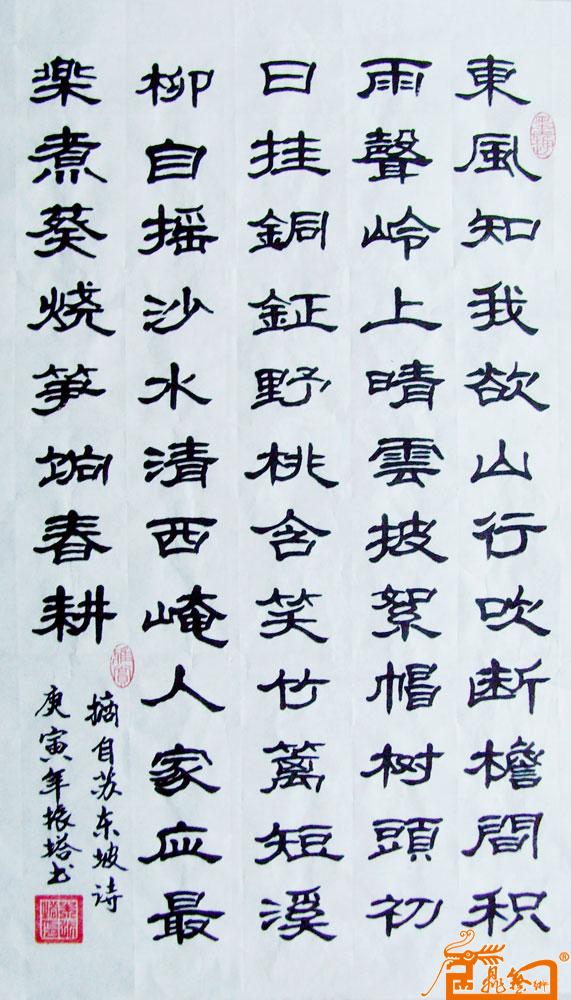 東風知我欲山行吹断檐間積
雨聲岭上晴雲披絮帽树頭初
日挂銅鉦野桃含笑竹篱短溪
柳自摇沙水清西崦人家应最
楽煮葵烧笋饷春耕
摘自苏东坡诗
庚寅年振塔书